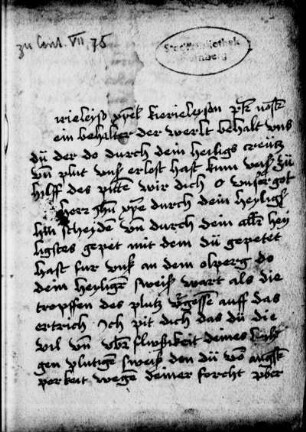 zu Cent. VII, 75
Stadtbibliothek
Nürnberg
kirieleyson
ein behalter der werlt behalt vns
du der do durch dein heiligs creutz
vnd plut vns erlost hast kum vns zu
hilff des pitten wir dich o vnser got
herr durch dein heyligs
hin scheiden vnd durch dein aller hey
ligstes gepet mit dem du gepetet
hast fur vns an dem olperg do
dein heyliger sweiß wart als die
tropffen des plutz auff das
ertrich Ich pit dich das du die
vil vnd flussikeit deines
gen plutigen sweiß den du von angst
perkeit wegen deiner forcht